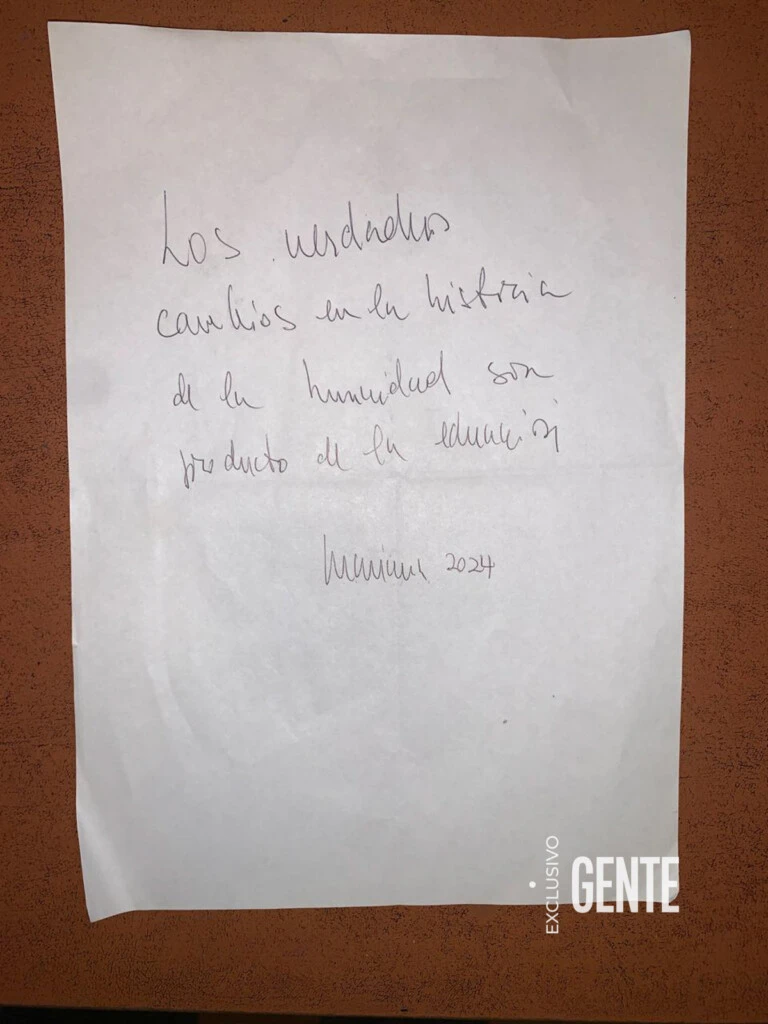 Los verdaderos
cambios en la historia
de la humanidad son
producto de la educación
Mariana 2024
EXCLUSIVO
GENTE